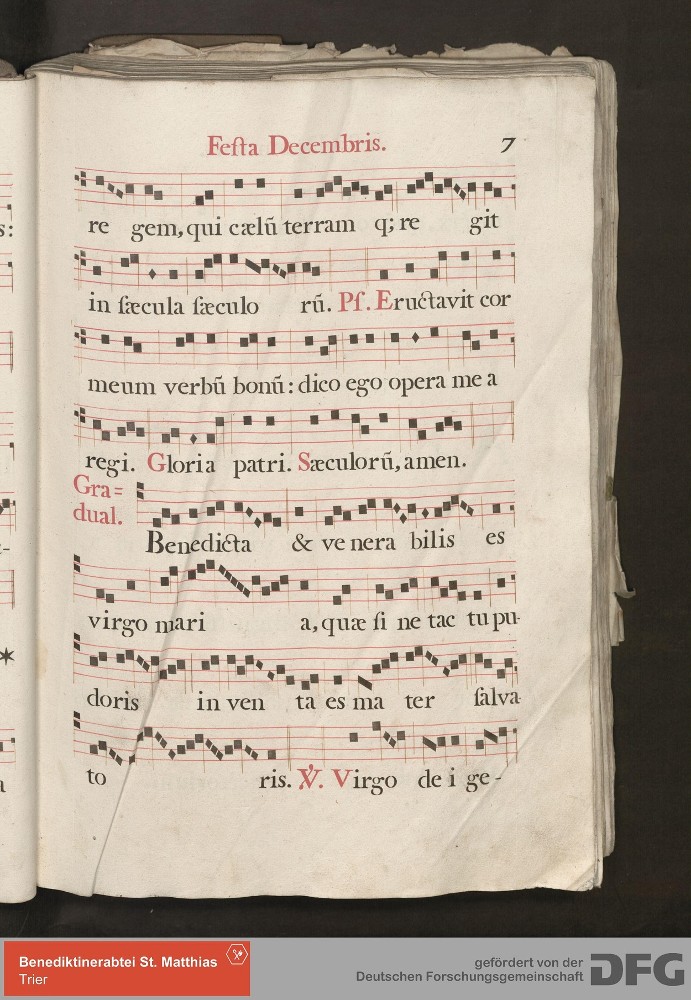 Festa Decembris. 7
re gem, qui cælũ terram q; re git
in sæcula sæculo rũ. Ps. Eructavit cor
meum verbũ bonũ: dico ego opera me a
regi. Gloria patri. Sæculorũ, amen.
Gra=
dual.
Benedicta & ve nera bilis es
virgo mari a, quæ si ne tac tu pu-
doris in ven ta es ma ter salva-
to ris. ℣. Virgo de i ge-
Benediktinerabtei St. Matthias
Trier
gefördert von der
Deutschen Forschungsgemeinschaft
DFG